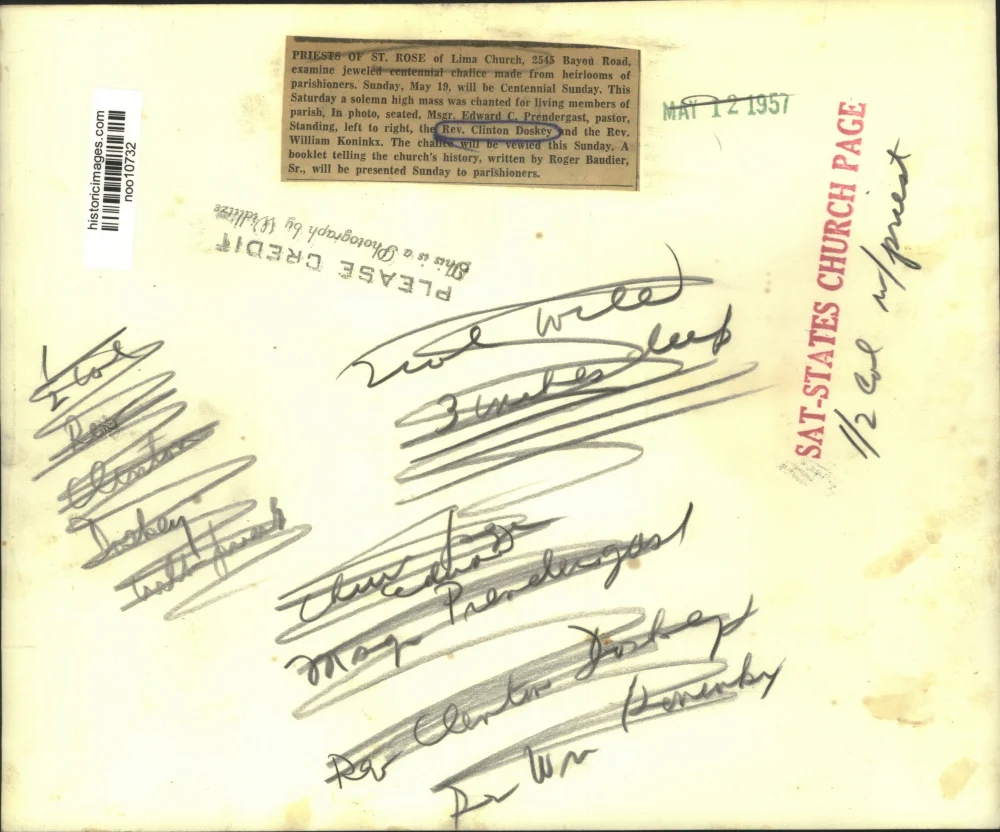 PRIESTS OF ST. ROSE of Lima Church, 2545 Bayou Road,
examine jeweled centennial chalice made from heirlooms of
parishioners. Sunday, May 19, will be Centennial Sunday. This
Saturday a solemn high mass was chanted for living members of
parish, In photo, seated, Msgr. Edward C. Prendergast, pastor,
Standing, left to right, the Rev. Clinton Doskey and the Rev.
William Koninkx. The chalice will be vewied this Sunday. A
booklet telling the church's history, written by Roger Baudier,
Sr., will be presented Sunday to parishioners.
MAY 12 1957
historicimages.com
noo10732
SAT-STATES CHURCH PAGE
1/2 Col w/priest
PLEASE CREDIT
This is a Photograph by
Rev
Clinton
Doskey
3 inches deep
Msgr Prendergast
Rev Clinton Doskey
Wm